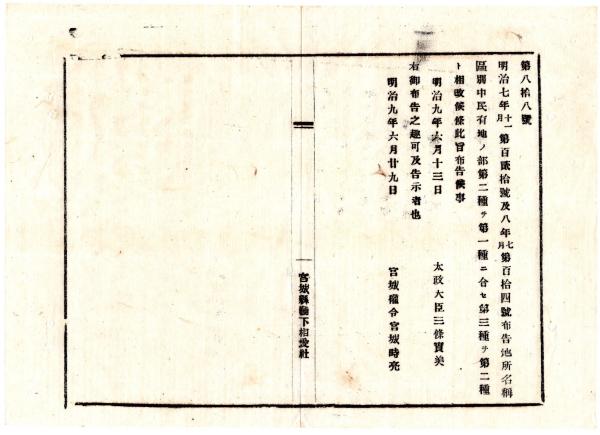 第八拾八號
明治七年十一月第百貳拾號及八年七月第百拾四號布告地所名稱
區別中民有地ノ部第二種ヲ第一種ニ合セ第三種ヲ第二種
ト相改候條此旨布告候事
明治九年六月十三日
太政大臣三條實美
右御布告之趣可及告示者也
明治九年六月廿九日
宮城權令宮城時亮
宮城縣管下相愛社